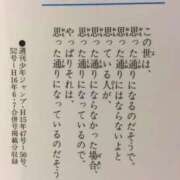 この世は、
思った通りになるのだそうで、
思った通りにはならないよと
思っている人が、
思った通りにならなかった場合、
やっぱりそれは、
思った通りになっているのだそうで
●週刊少年ジャンプ・H15年47号〜50号、
52号〜H16年6・7合併号掲載分収録